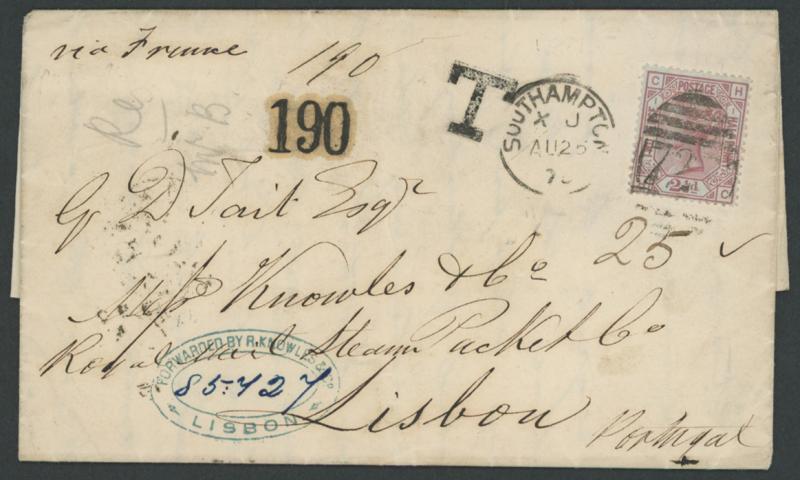 via France
190
190
T
SOUTHAMPTON
X J
AU 25
C H
POSTAGE
2½d
C
G D Tait Esqr
25
Messrs Knowles & Co
Royal Mail Steam Packet Co
FORWARDED BY R. KNOWLES & Co
85:427
LISBON
Lisbon
Portugal